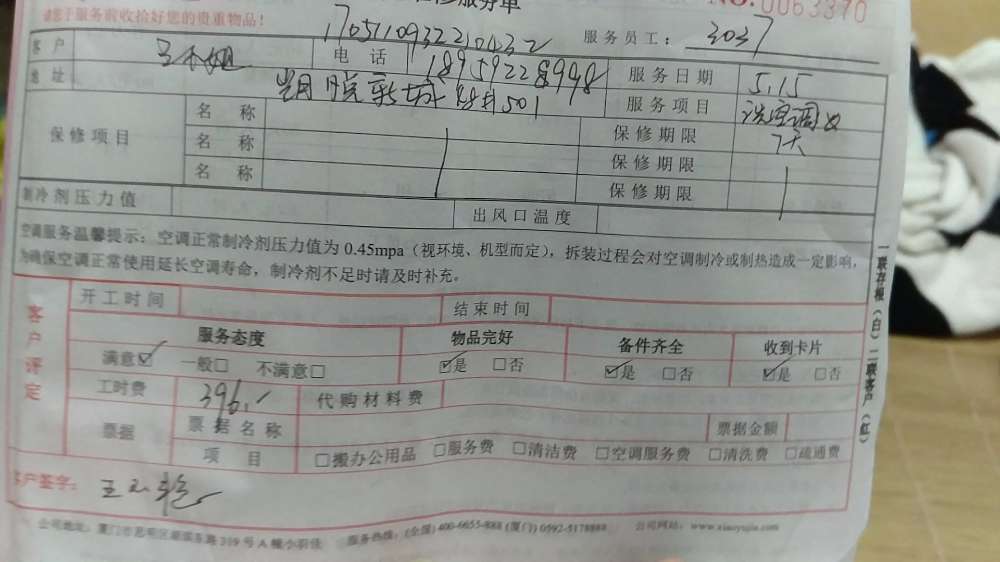 请您于服务前收拾好您的贵重物品！ 服务单 NO.0063370
1705110932210432 服务员工： 3037
客户 王小姐 电话 18959228998 服务日期 5.15
地址 新城 501 服务项目 洗空调
保修项目 名称 保修期限 7天
名称 保修期限
名称 保修期限
制冷剂压力值 出风口温度
空调服务温馨提示：空调正常制冷剂压力值为 0.45mpa（视环境、机型而定），拆装过程会对空调制冷或制热造成一定影响，
为确保空调正常使用延长空调寿命，制冷剂不足时请及时补充。
客户评定 开工时间 结束时间
服务态度 物品完好 备件齐全 收到卡片
满意☑ 一般□ 不满意□ ☑是 □否 ☑是 □否 ☑是 □否
工时费 396.- 代购材料费
票据 票据名称 票据金额
项目 □搬办公用品 □服务费 □清洁费 □空调服务费 □清洗费 □疏通费
客户签字：
公司地址：厦门市思明区湖滨东路319号A幢小羽佳 服务热线：(全国) 400-6655-888 (厦门) 0592-5178888 公司网站：www.xiaoyujia.com
一联存根（白）二联客户（红）